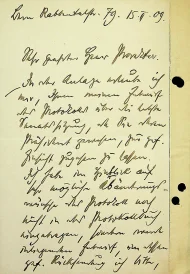 Bern Rabbentalstr. 79. 15. X. 09.
Sehr geehrter Herr Präsident.
In der Anlage erlaube ich
mir, Ihnen meinen Entwurf
des Protokolls über die letzte
Senatssitzung, in der Sie
Präsident gewesen, zur gef.
Einsicht zugehen zu lassen.
Ich habe im Hinblick auf
mögliche Abänderungs-
das Protokoll noch
nicht in das Protokollbuch
eingetragen, sondern
Entwurf, um dessen
gef. Rücksendung ich bitte,